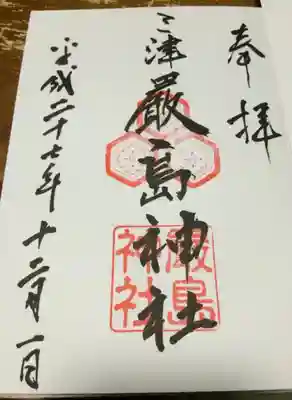 奉拝
三津厳島神社
厳島神社
平成二十七年十二月一日